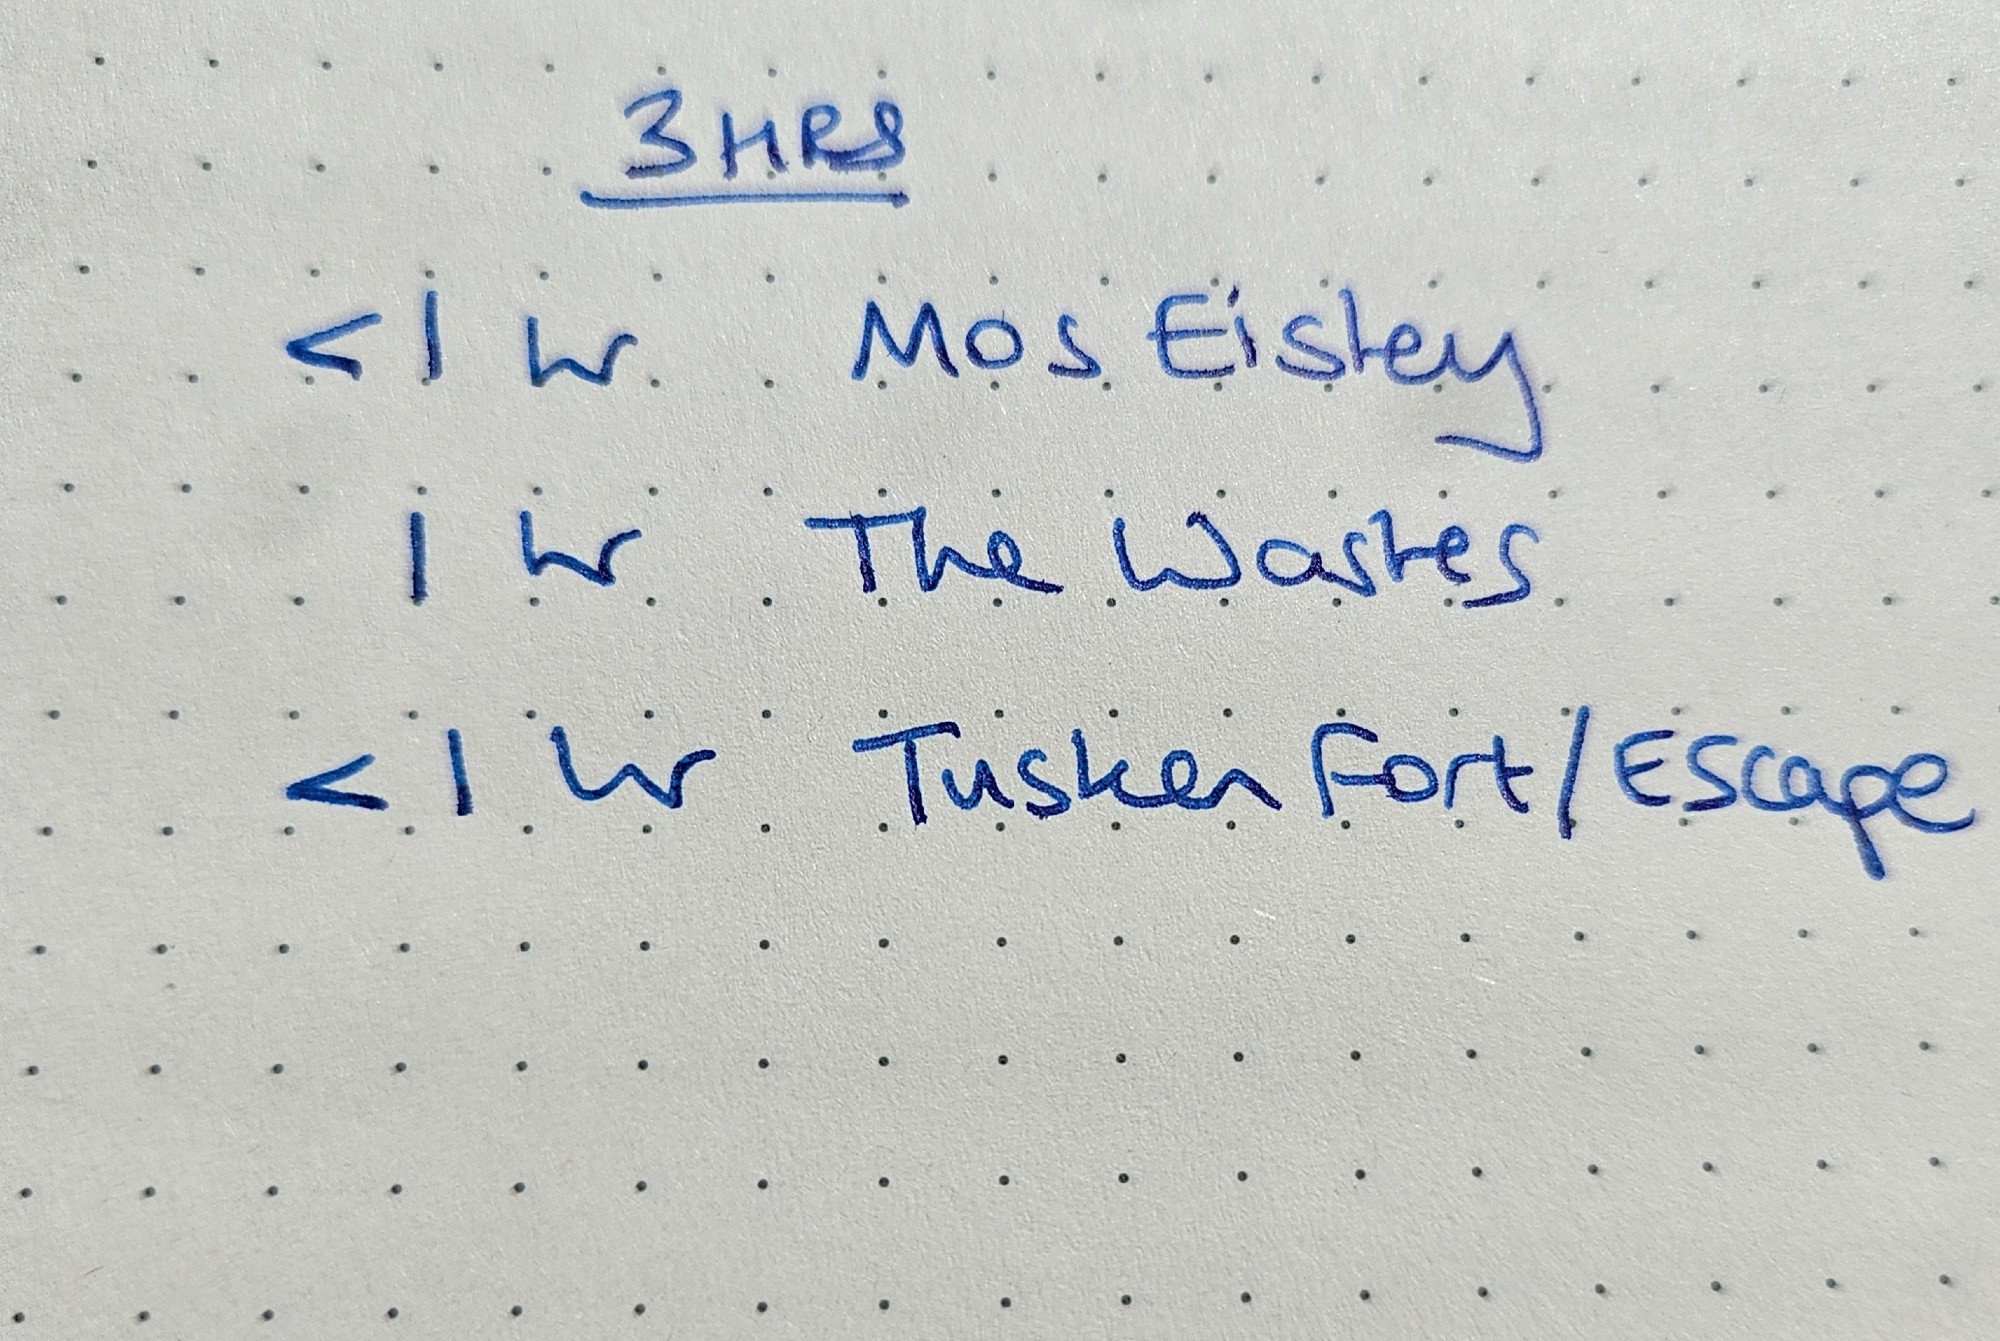 3 HRS
<1 hr Mos Eisley
1 hr The Wastes
<1 hr Tusken Fort/Escape